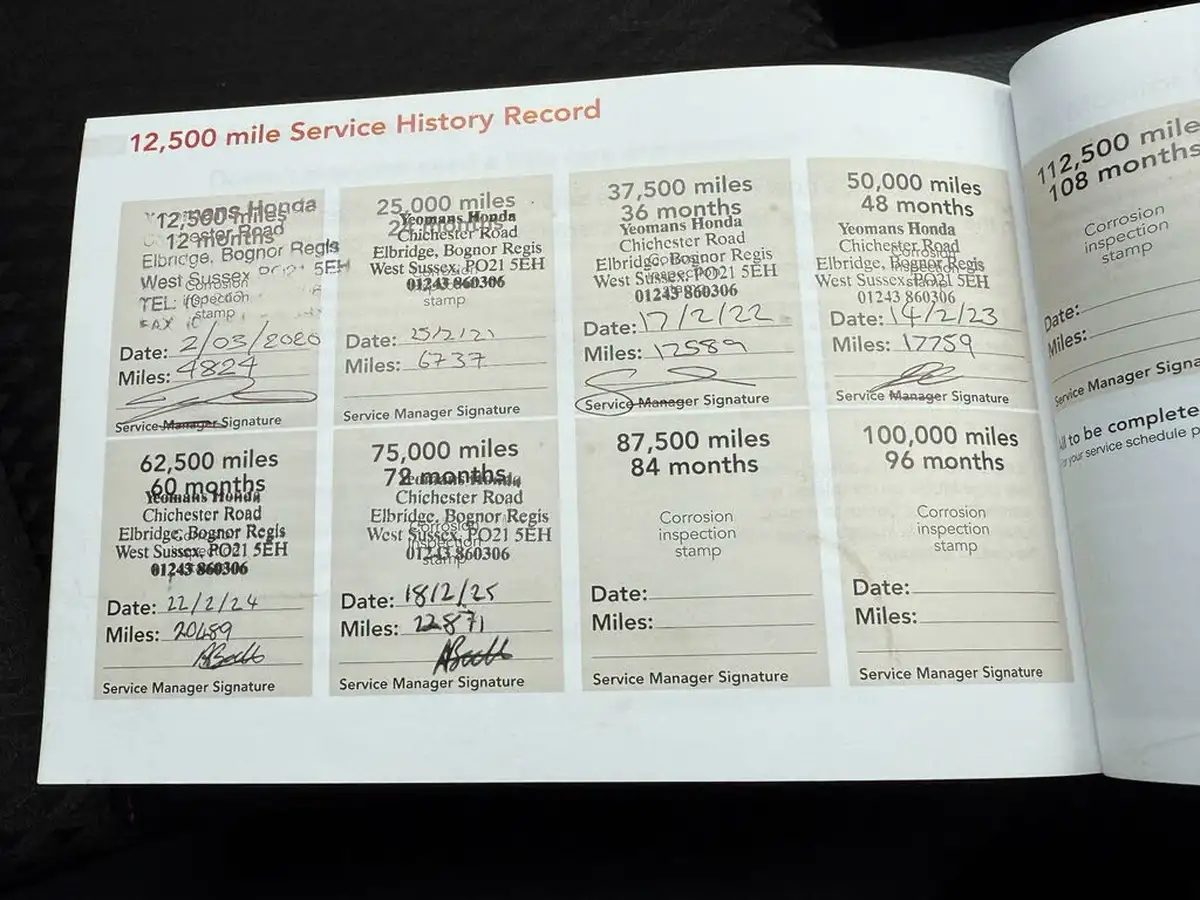 12,500 mile Service History Record
12,500 miles
12 months
Yeomans Honda
Chichester Road
Elbridge, Bognor Regis
West Sussex PO21 5EH
TEL:
FAX
Corrosion
inspection
stamp
Date: 2/03/2020
Miles: 4824
Service Manager Signature
25,000 miles
24 months
Yeomans Honda
Chichester Road
Elbridge, Bognor Regis
West Sussex, PO21 5EH
01243 860306
stamp
Date: 25/2/21
Miles: 6737
Service Manager Signature
37,500 miles
36 months
Yeomans Honda
Chichester Road
Elbridge, Bognor Regis
West Sussex, PO21 5EH
01243 860306
Date: 17/2/22
Miles: 12589
Service Manager Signature
50,000 miles
48 months
Yeomans Honda
Chichester Road
Elbridge, Bognor Regis
West Sussex, PO21 5EH
01243 860306
Date: 14/2/23
Miles: 17759
Service Manager Signature
62,500 miles
60 months
Yeomans Honda
Chichester Road
Elbridge, Bognor Regis
West Sussex, PO21 5EH
01243 860306
Date: 22/2/24
Miles: 20489
Service Manager Signature
75,000 miles
72 months
Yeomans Honda
Chichester Road
Elbridge, Bognor Regis
West Sussex, PO21 5EH
01243 860306
Corrosion
inspection
stamp
Date: 18/2/25
Miles: 22871
Service Manager Signature
87,500 miles
84 months
Corrosion
inspection
stamp
Date:
Miles:
Service Manager Signature
100,000 miles
96 months
Corrosion
inspection
stamp
Date:
Miles:
Service Manager Signature
112,500 mile
108 months
Corrosion
inspection
stamp
Date:
Miles:
Service Manager Signa
to be complete
your service schedule p